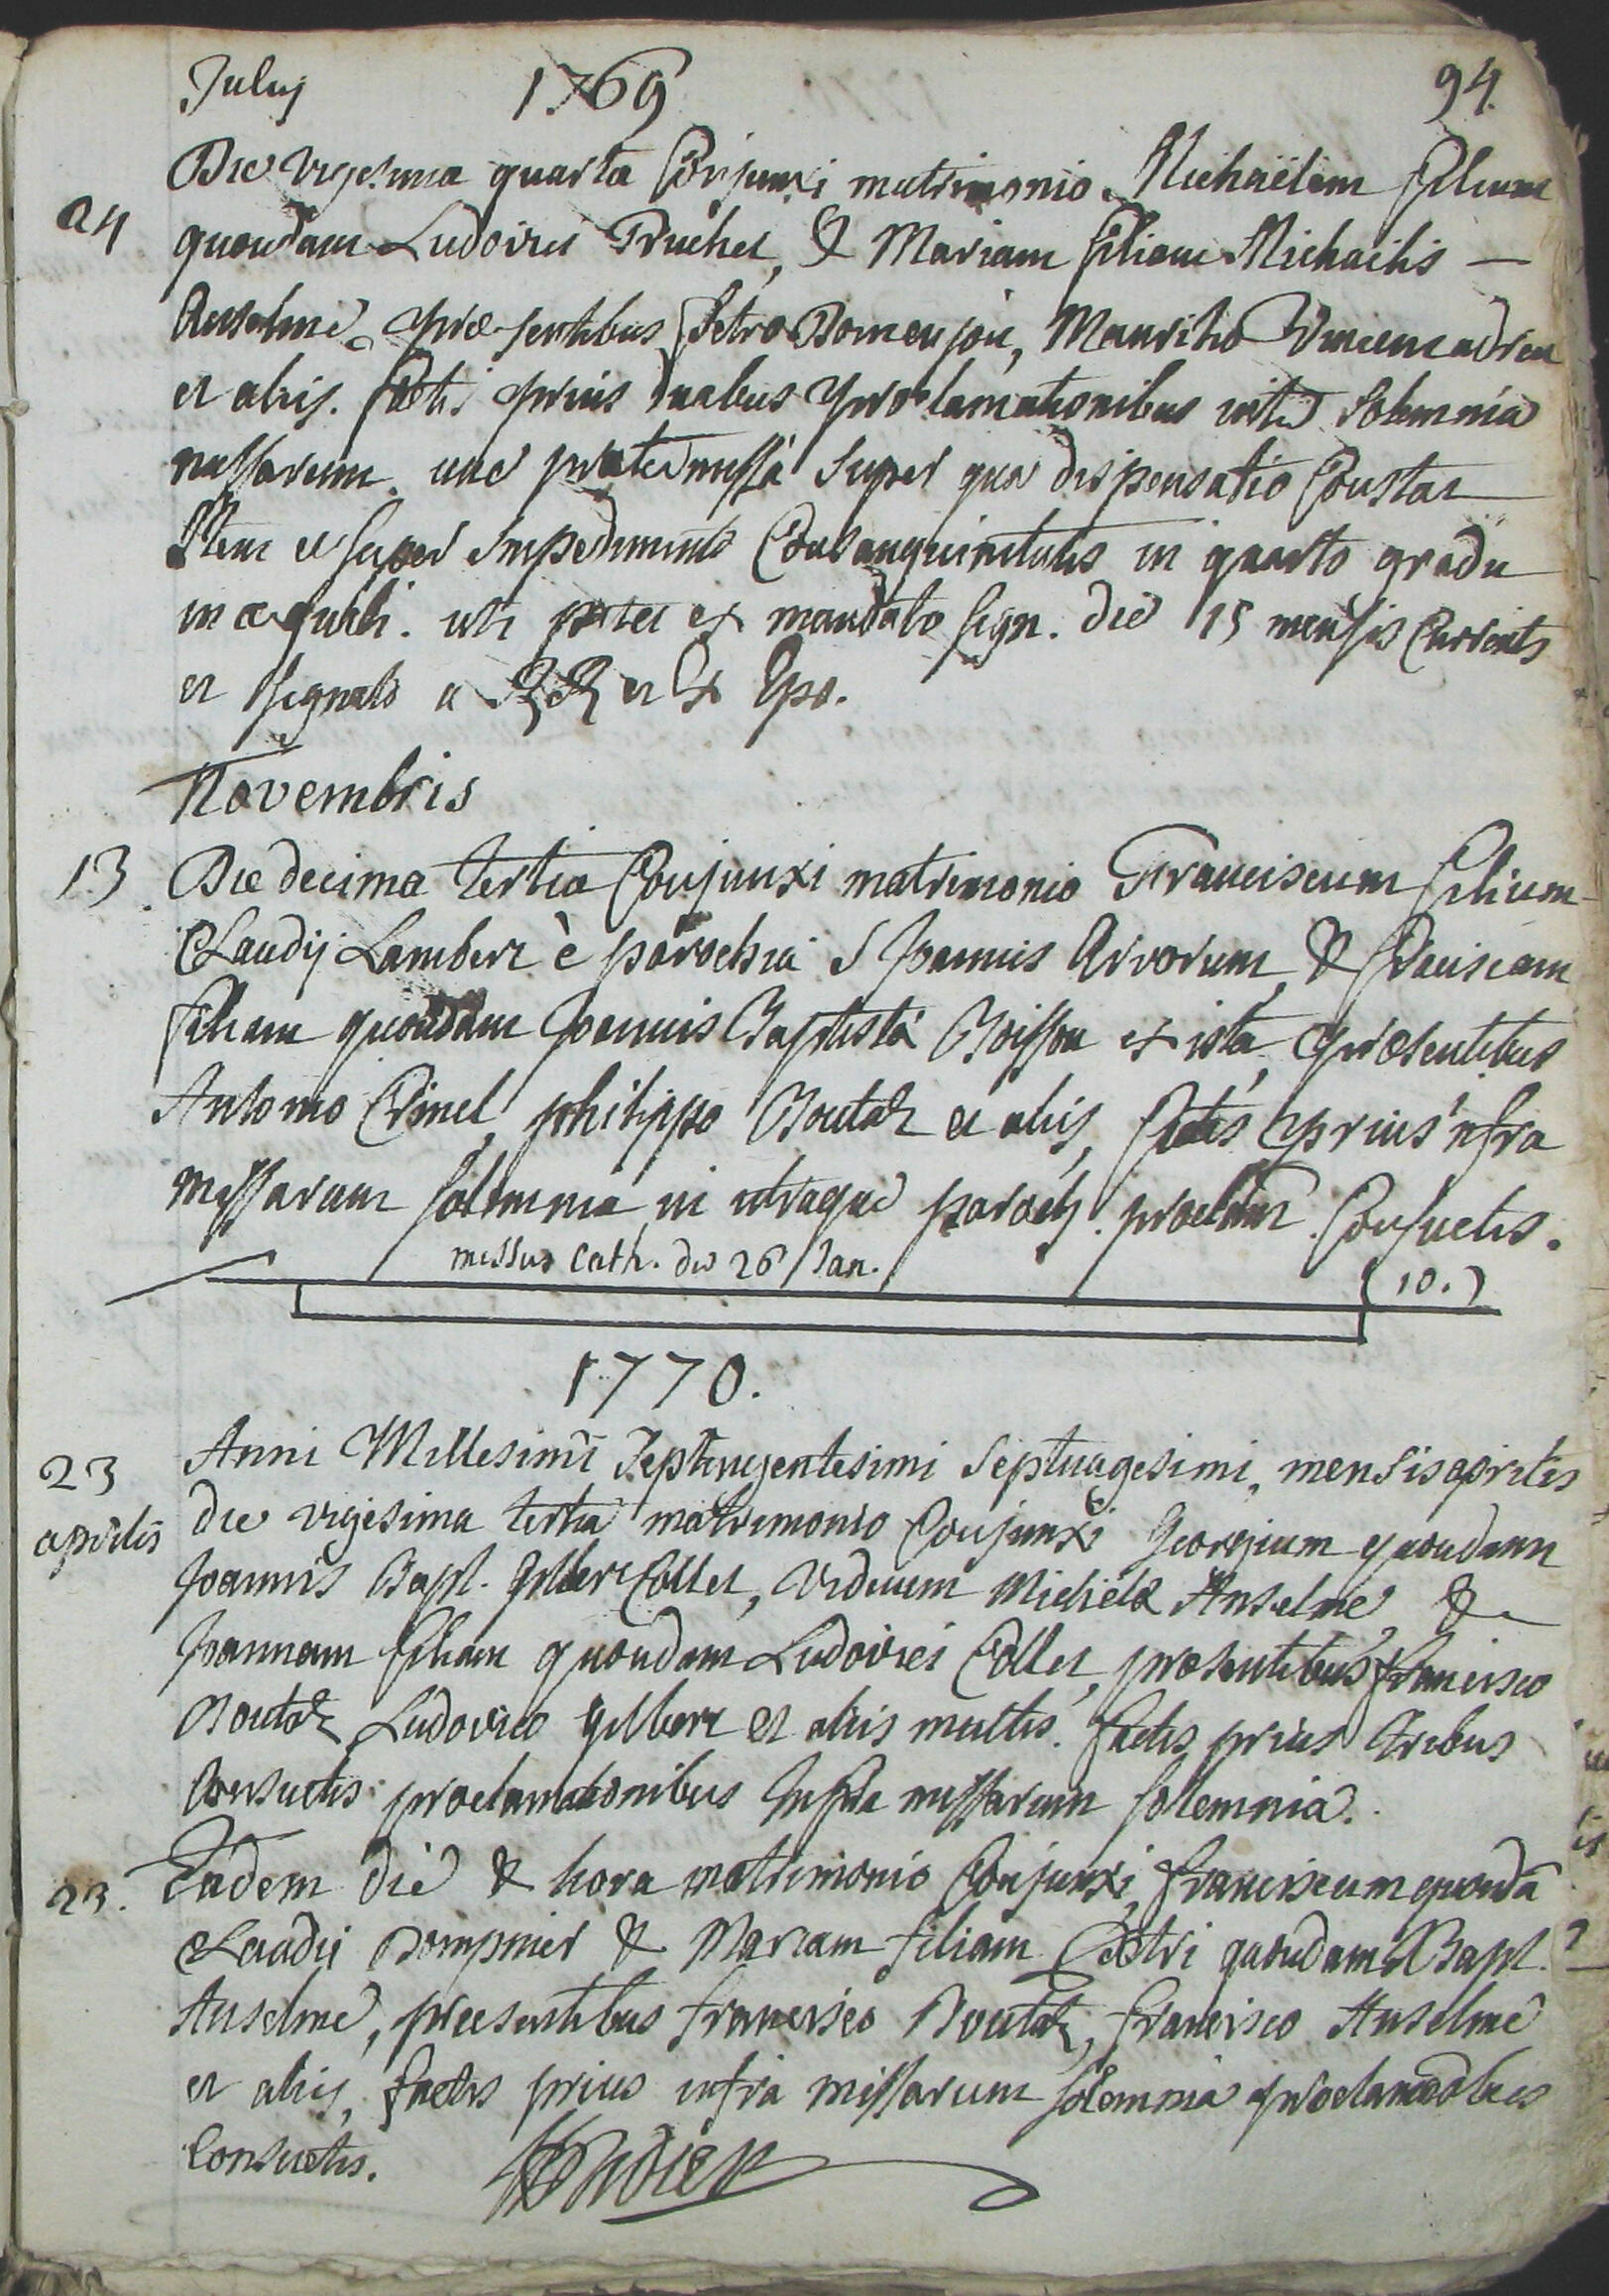 Julij 1769 94.
Die Vigesima quarta Conjunxi matrimonio Michaëlem filium
24 quondam Ludovici Truchet, & Mariam filiam Michaelis —
Anselme, præsentibus Petro Domenjou, Mauritio Vincent
et alijs. factis prius duabus proclamationibus inter Solemnia
missarum, una prætermissâ Super qua dispensatio Constat
Item et super Impedimento Consanguinitatis in quarto gradu
inæquali. uti patet ex mandato sign. die 15 mensis Currentis
et signato a RR et Ex Epo.
Novembris
13. Die decima tertia Conjunxi matrimonio Franciscum filium
Claudij Lambert è parochia S Joannis Arvorum, & Franciscam
filiam quondam Joannis Baptistâ Boisson ex ista, præsentibus
Antonio Crinel, philippo Boutaz et alijs, factis prius infra
missarum solemnia in utraque paroch. proclam. Consuetis.
missus Cath. die 26 Jan. (10.)
1770.
23 Anni Millesimi Septingentesimi Septuagesimi, mensis aprilis
aprilis die vigesima tertia matrimonio Conjunxi Georgium quondam
Joannis Bapt. Gilbert Collet, Viduum Michælæ Anselme, &
Joannam filiam quondam Ludovici Collet, præsentibus francisco
Boutaz Ludovico gilbert et aliis multis. factis prius tribus
Consuetis proclamationibus Infra missarum solemnia.
23. Eâdem die & hora matrimonio Conjunxi, franciscum quondâ
Claudii Dompnier & Mariam filiam Petri quondam Bapt.
Anselme, præsentibus francisco Boutaz, francisco Anselme
et alijs, factis prius infra missarum solemnia proclamaõbus
Consuetis.